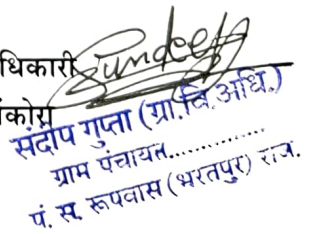 धिकारी Sundeep
कोरा
संदीप गुप्ता (ग्रा.वि.अधि.)
ग्राम पंचायत..............
पं. स. रूपवास (भरतपुर) राज.